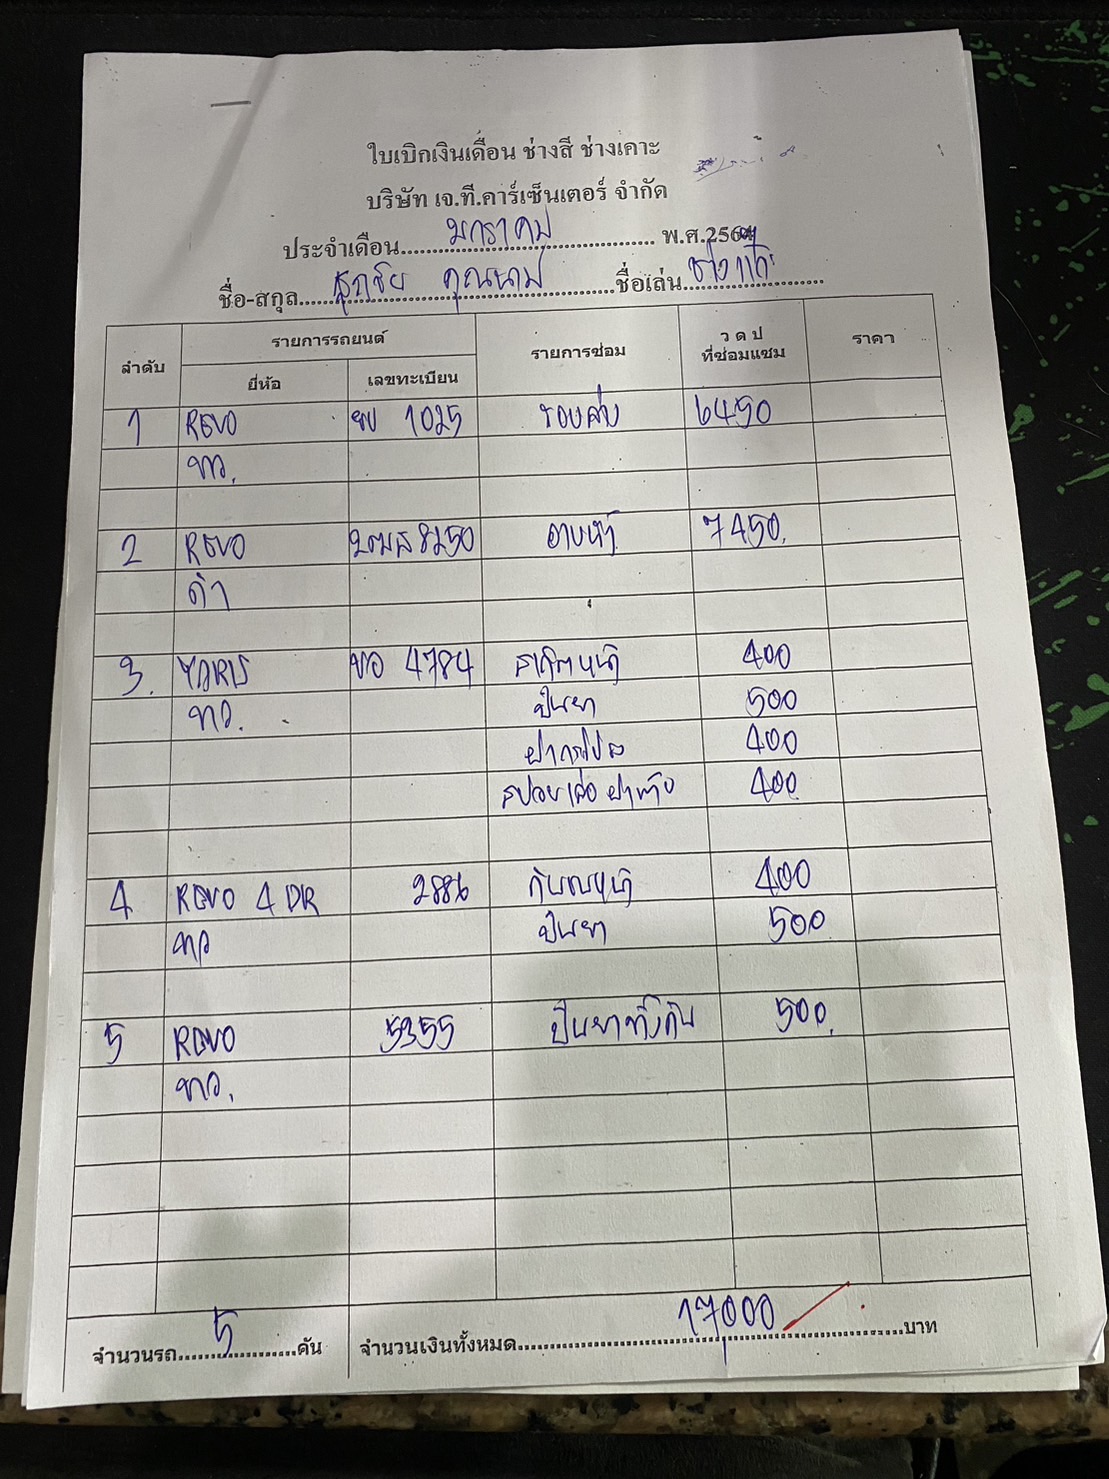 ใบเบิกเงินเดือน ช่างสี ช่างเคาะ
บริษัท เจ.ที.คาร์เซ็นเตอร์ จำกัด
ประจำเดือน มกราคม พ.ศ.256
ชื่อ-สกุล ชื่อเล่น ช่าง
ลำดับ รายการรถยนต์ รายการซ่อม ว ด ป ที่ซ่อมแซม ราคา
ยี่ห้อ เลขทะเบียน
1 REVO 1025 รองล่าง 6450
ขาว.
2 REVO 8250 7450.
ดำ
3. YARIS ขอ 4784 400
ขาว. ปีนยา 500
ฝากระโปรง 400
สปอยเลอ ฝาท้าย 400
4 REVO 4 DR 2886 กันชนหน้า 400
ขาว ปีนยา 500
5 REVO 5355 ปีนยาทั้งคัน 500.
ขาว.
จำนวนรถ 5 คัน จำนวนเงินทั้งหมด 17000 บาท